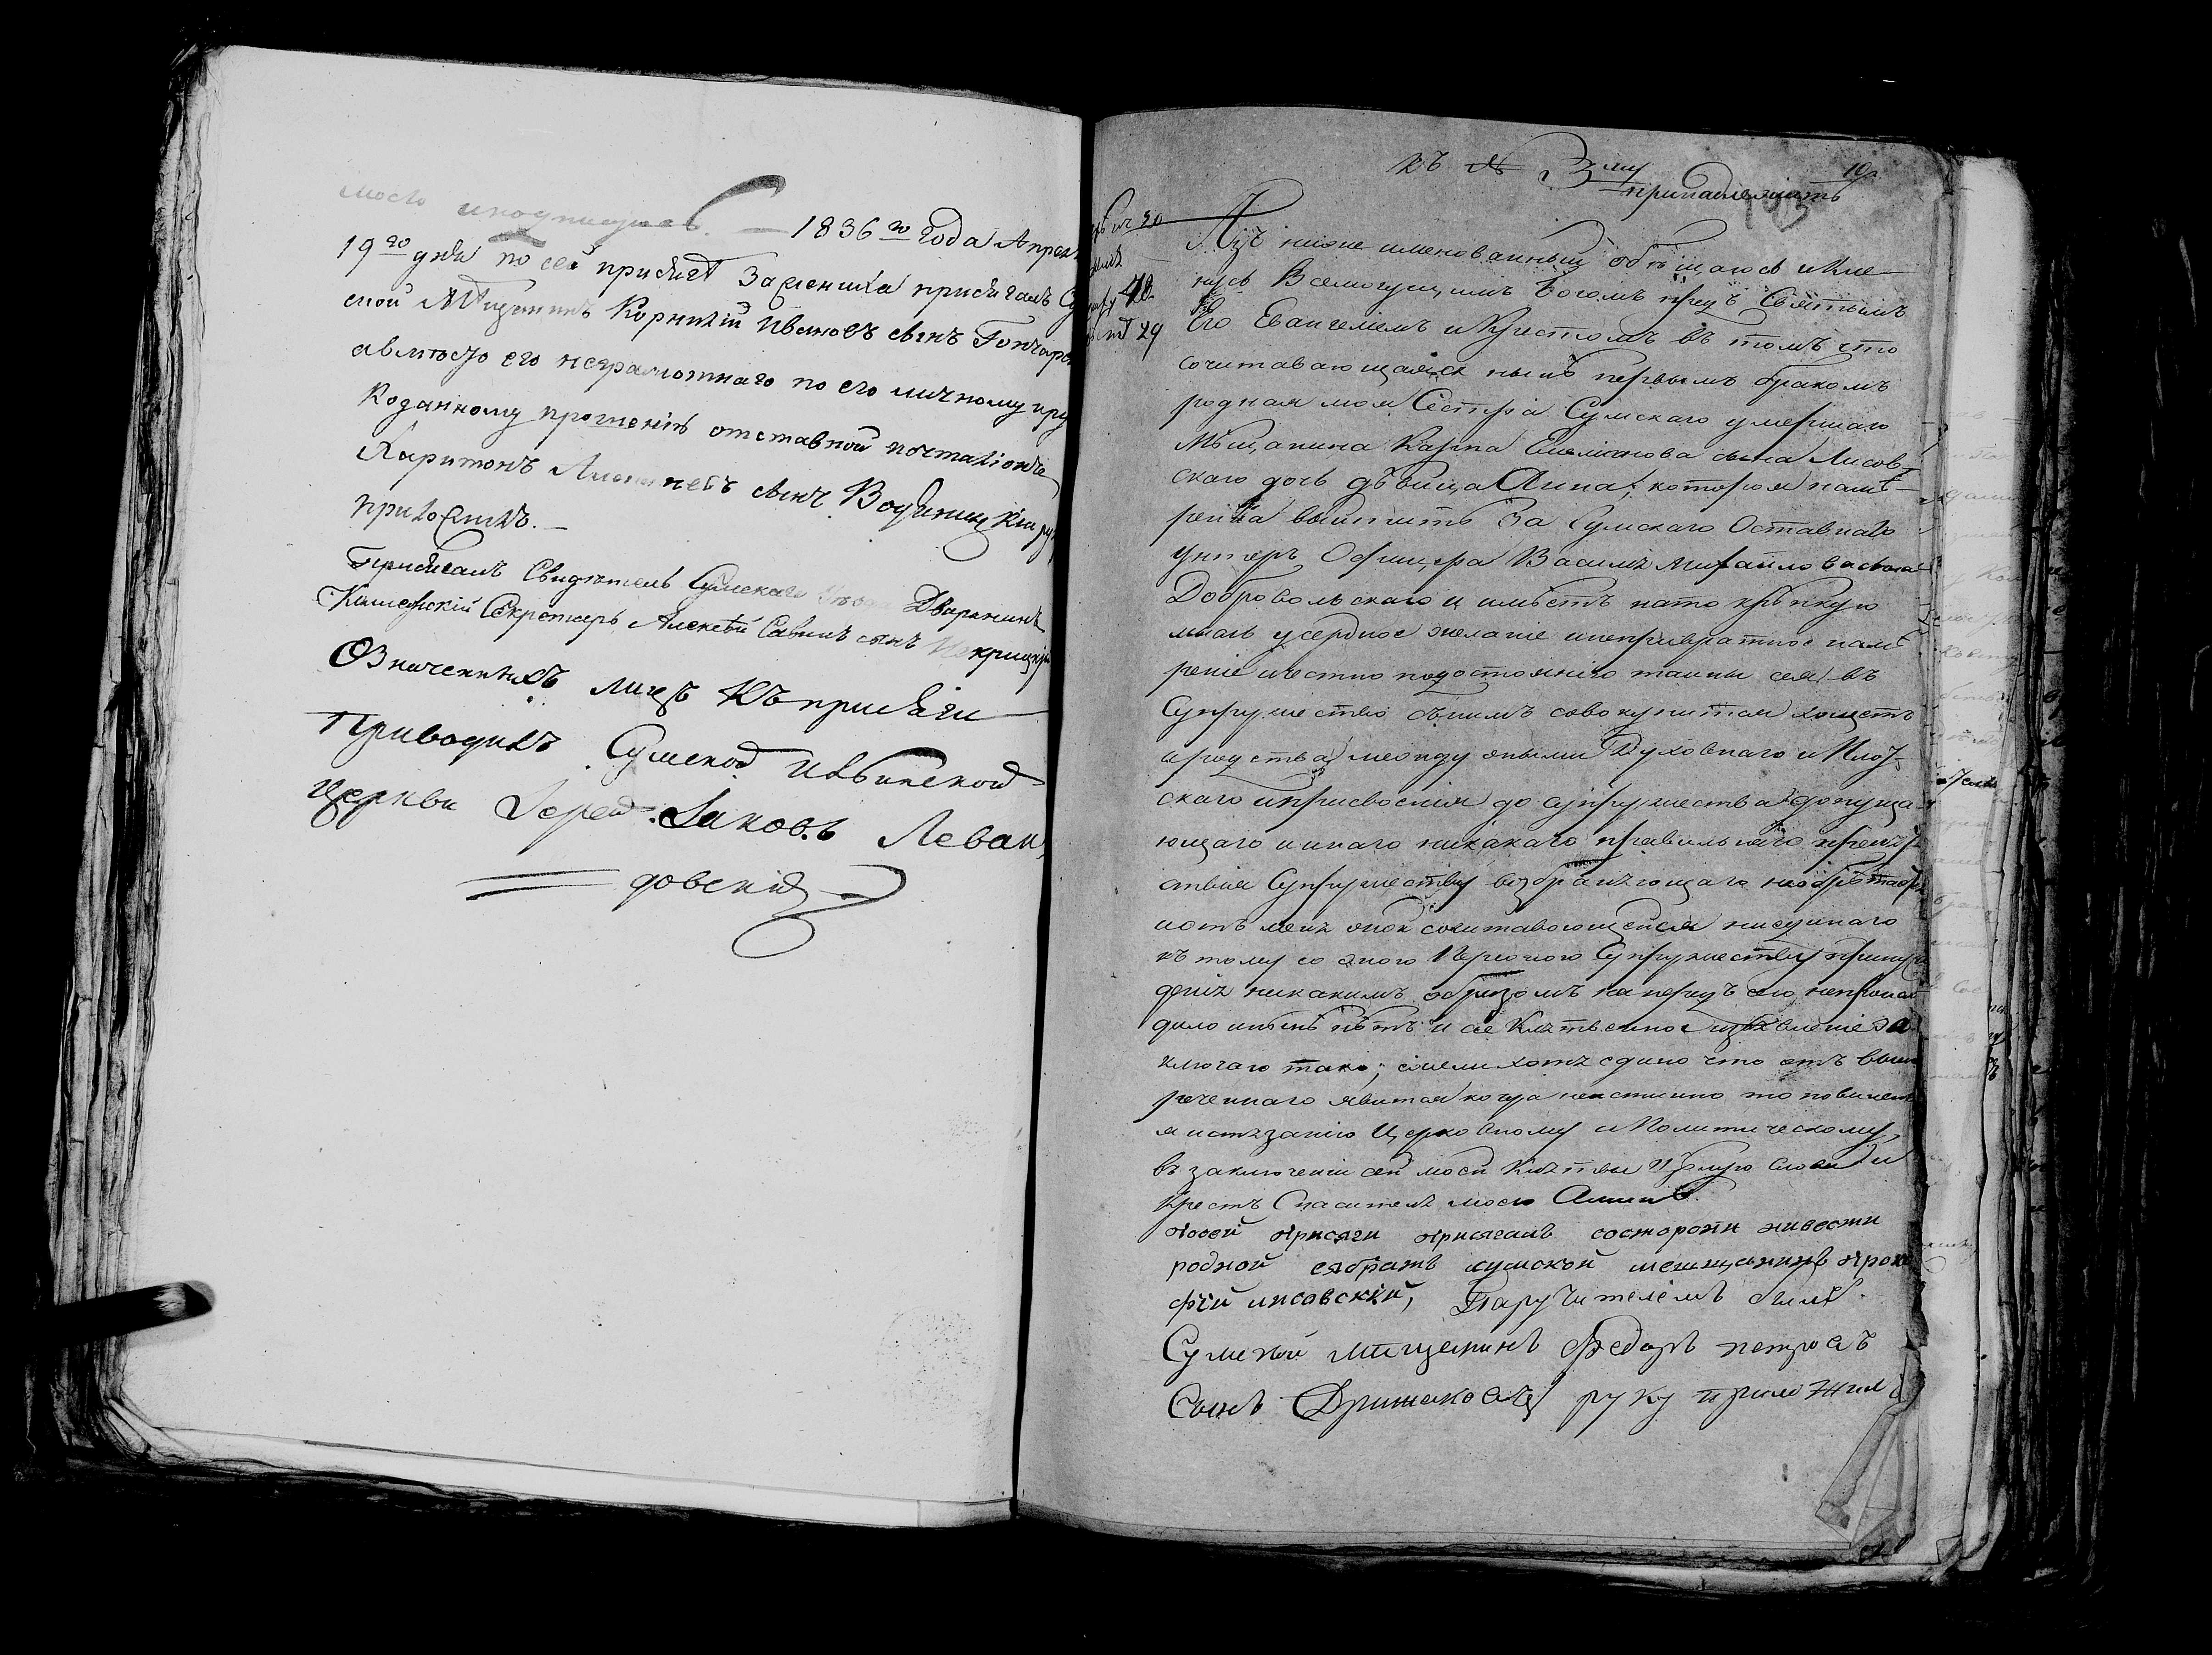 моею и подпишусь. — 1836го года Апрел
19го дня по сей присягѣ За жениха присягалъ Су
ской Мѣщанинъ Корнилій Ивановъ сынъ Гончаро
а вмѣсто его неграмотнаго по его личному и ру
коданному прошенію отставной почталіонъ
Харитонъ сынъ руку
приложилъ. —
Присягалъ Свидѣтель Сумскаго уѣзда Дворянинъ
Секретарь Алексѣй Савинъ сынъ
Означенныхъ лицъ Къ присяги
Приводилъ Сумской Ильинской
Церкви Іерей Іаковъ Леван,
довскій
къ № 3му 10.
принадлежитъ
20
48.
29
Азъ ниже именованный обѣщаюсь и кле-
нусь Всемогущимъ Богомъ предъ Святымъ
Его Евангеліемъ и Крестомъ въ томъ что
сочитавающаяся нынѣ первымъ бракомъ
родная моя Сестра Сумскаго умершаго
Мѣщанина Карпа Емельянова сына Лисов-
скаго дочь дѣвица Анна, которая намѣ-
рена выйтить За Сумскаго Оставнаго
Унтеръ Офицера Василя Михайлова сына
Добровольскаго и имѣетъ на то крѣпкую
мысль усердное желаніе и непревратное намѣ
реніе и честно по достоянію тайны сея въ
Супружество съ нимъ совокупится хощетъ
и родства между оными Духовнаго и Плот-
скаго и присвоенія до супружества недопуща-
ющаго и инаго никакаго правильнаго препят
ствія Супружеству возбраняющаго необрѣтаетъ
и отъ меня оной сочитавающейся ниединаго
къ тому со оного Персоною Супружеству принуж
денія никакимъ образомъ напредъ сего непроисхо
дило и нынѣ нѣтъ и сіе Клятвенное изъявленіе за
ключаю тако; ежели хотя едино что отъ выше
реченнаго явится когда неистинно то повиненъ
я истязанію Церковному и Политическому,
въ заключеніи сей моей Клятвы Цѣлую Слова и
Крестъ Спасителя моего Аминь.
По сей присяги присягалъ состороны нивести
родной ея братъ сумской мещщанинъ Проко
фій лисовскій, Паручителемъ былъ
Сумской мѣщенинъ Федоръ петровъ
Сынъ руку приложилъ